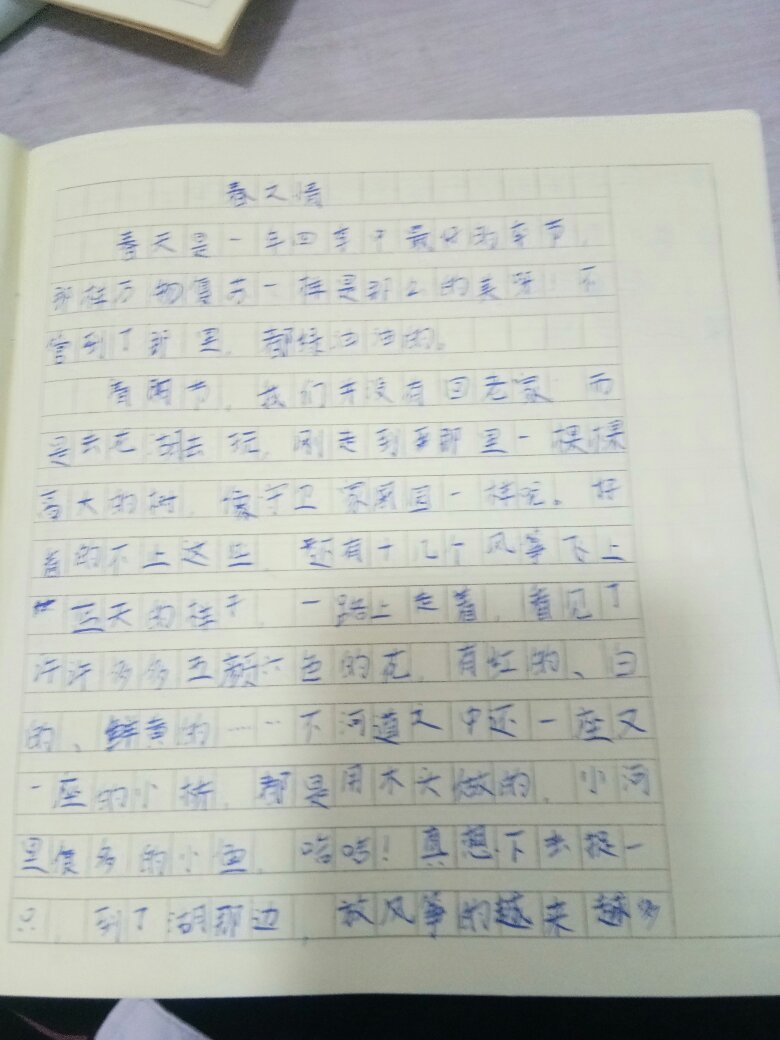 春之情
春天是一年四季中最好的季节,
那种万物复苏一样是那么的美 不
管到了那里,都绿汪汪的。
清明节,我们并没有回老家 而
是去花湖去玩,刚走到那里一棵棵
高大的树,像守卫家园一样 。好
看的不止这些,还有十几个风筝飞上
蓝天的样子,一路上走着,看见了
许许多多五颜六色的花,有红的、白
的、鲜黄的……下河道 中还一座又
一座的小桥,都是用木头做的,小河
里 多的小鱼,哈哈!真想下去捉一
只,到了湖那边,放风筝的越来越多